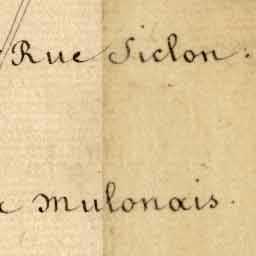 Rue Siclon.
Mulonais.